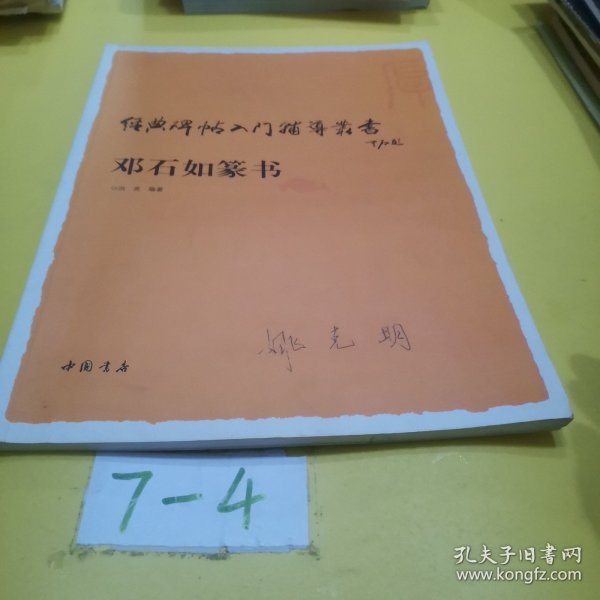 经典碑帖入门辅导叢書
邓石如篆书
洪亮 编著
姚克明
中国书店
7-4
孔夫子旧书网
www.kongfz.com